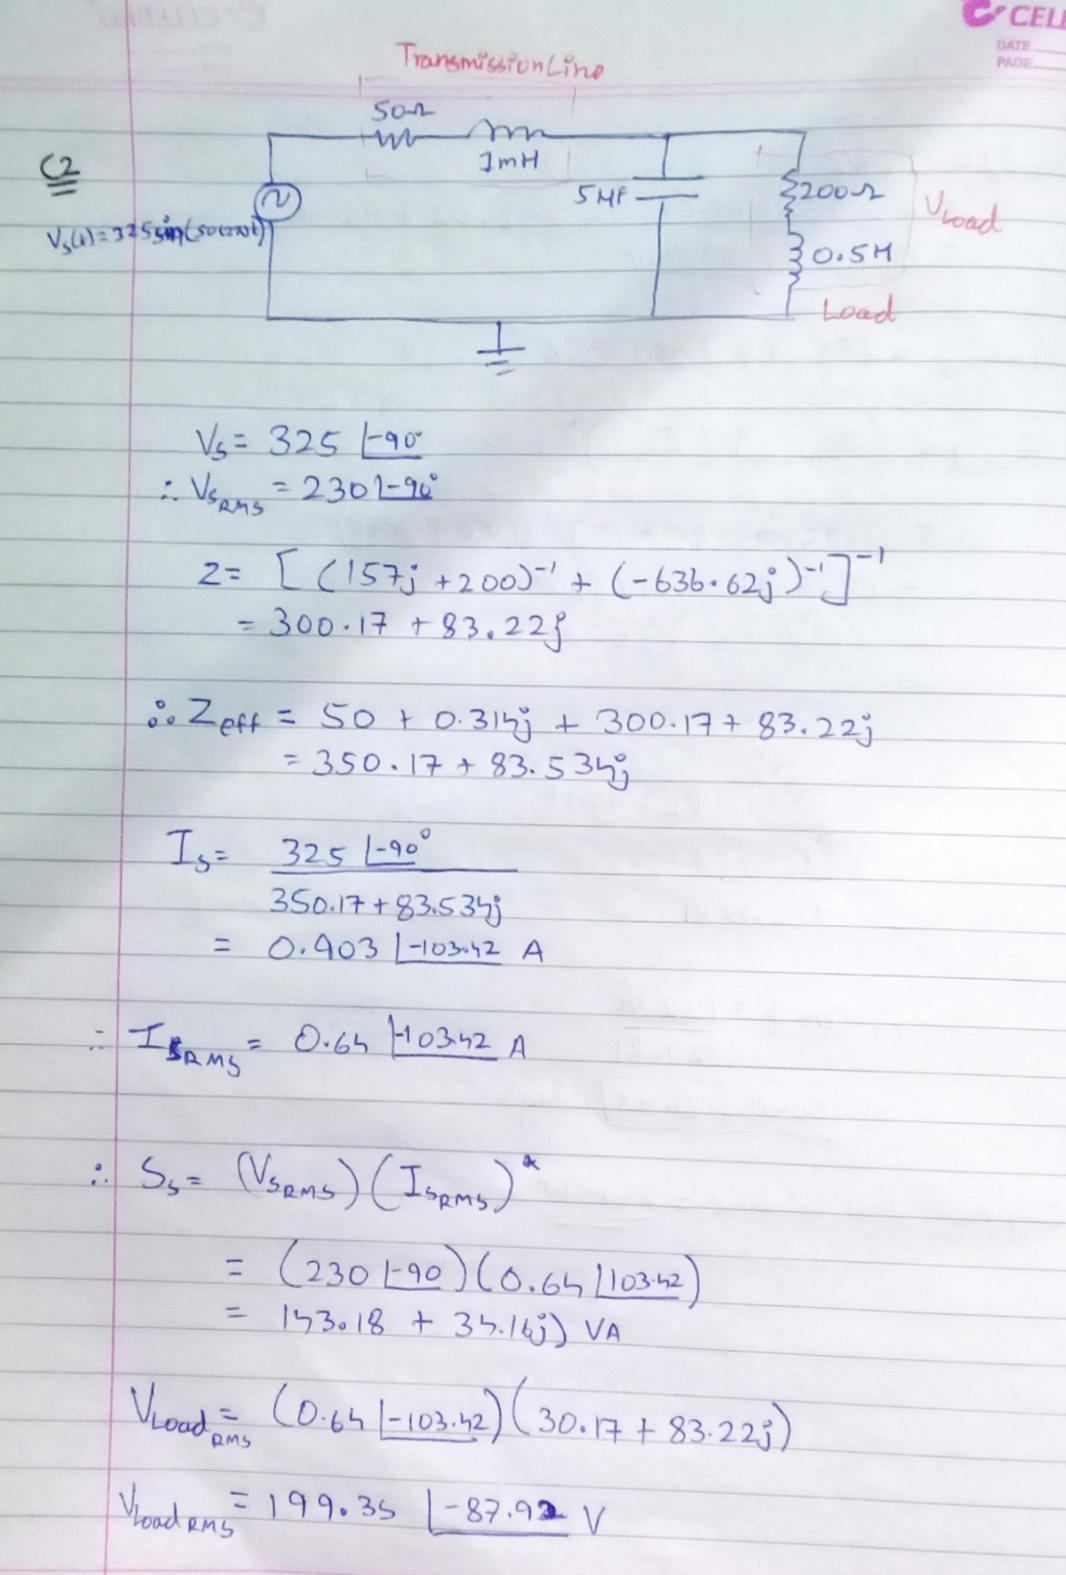 CELL
DATE
PAGE
Transmission Line
50Ω
1mH
C2
5MF
200Ω
VLoad
Vs(t)=325sin(50(2π)t)
0.5H
Load
Vs= 325 ∟-90°
∴ VsRMS = 230∟-90°
Z= [(157j +200)⁻¹ + (-636.62j)⁻¹]⁻¹
= 300.17 + 83.22j
∴ Zeff = 50 + 0.314j + 300.17+ 83.22j
= 350.17 + 83.534j
Is= 325 ∟-90°
350.17+83.534j
= 0.903 ∟-103.42 A
∴ IsRMS = 0.64 ∟-103.42 A
∴ Ss= (VsRMS)(IsRMS)*
= (230∟-90)(0.64∟103.42)
= 143.18 + 34.16j) VA
VLoadRMS = (0.64∟-103.42)(30.17 + 83.22j)
VLoadRMS = 199.35 ∟-87.92 V